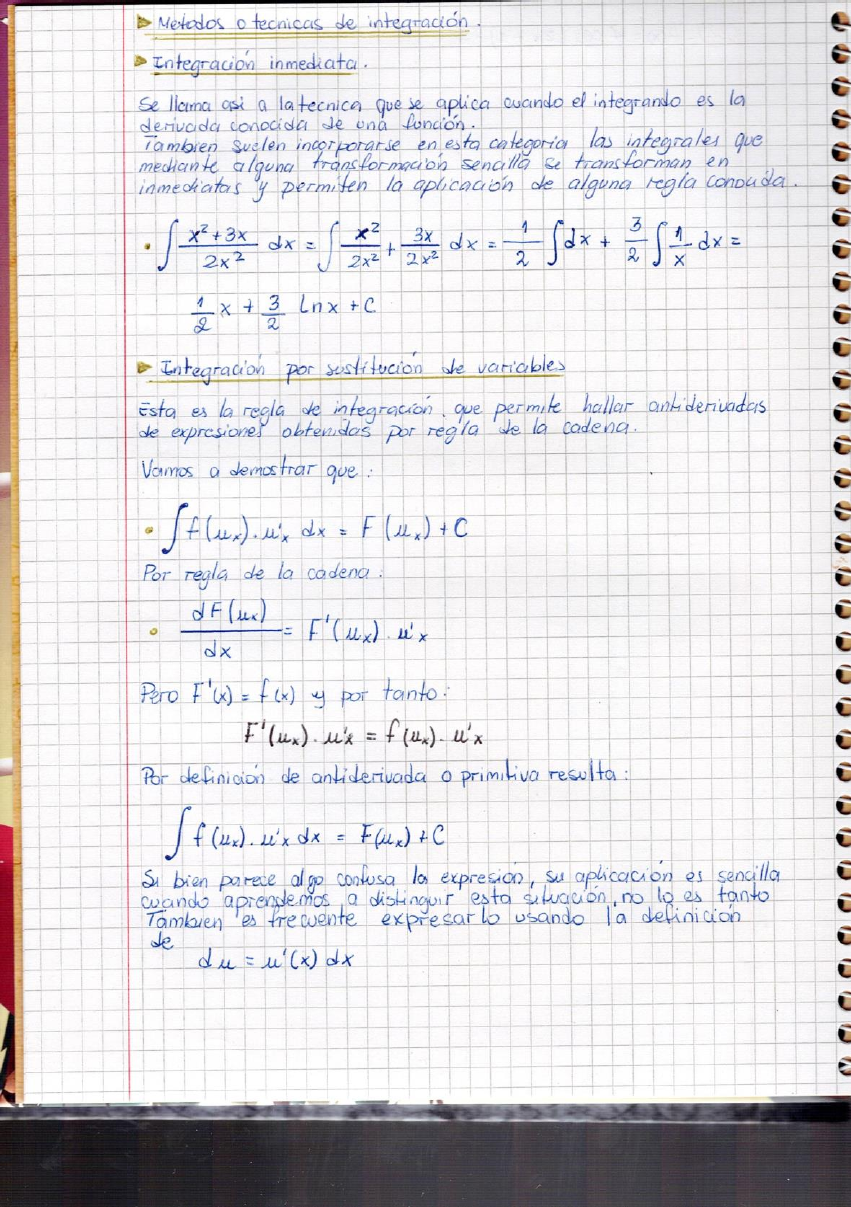 Metodos o tecnicas de integración.
Integración inmediata.
Se llama asi a la tecnica que se aplica cuando el integrando es la
derivada conocida de una función.
Tambien suelen incorporarse en esta categoria las integrales que
mediante alguna transformación sencilla se transforman en
inmediatas y permiten la aplicación de alguna regla conocida.
• ∫ (x² + 3x)/(2x²) dx = ∫ x²/(2x²) + 3x/(2x²) dx = 1/2 ∫ dx + 3/2 ∫ 1/x dx =
1/2 x + 3/2 Ln x + C
Integración por sustitución de variables
Esta es la regla de integración, que permite hallar antiderivadas
de expresiones obtenidas por regla de la cadena.
Vamos a demostrar que:
• ∫ f(uₓ) . u'ₓ dx = F(uₓ) + C
Por regla de la cadena:
• dF(uₓ)/dx = F'(uₓ) . u'ₓ
Pero F'(x) = f(x) y por tanto:
F'(uₓ) . u'ₓ = f(uₓ) . u'ₓ
Por definición de antiderivada o primitiva resulta:
∫ f(uₓ) . u'ₓ dx = F(uₓ) + C
Si bien parece algo confusa la expresión, su aplicación es sencilla
cuando aprendemos a distinguir esta situación, no lo es tanto
Tambien es frecuente expresarlo usando la definición
de
du = u'(x) dx